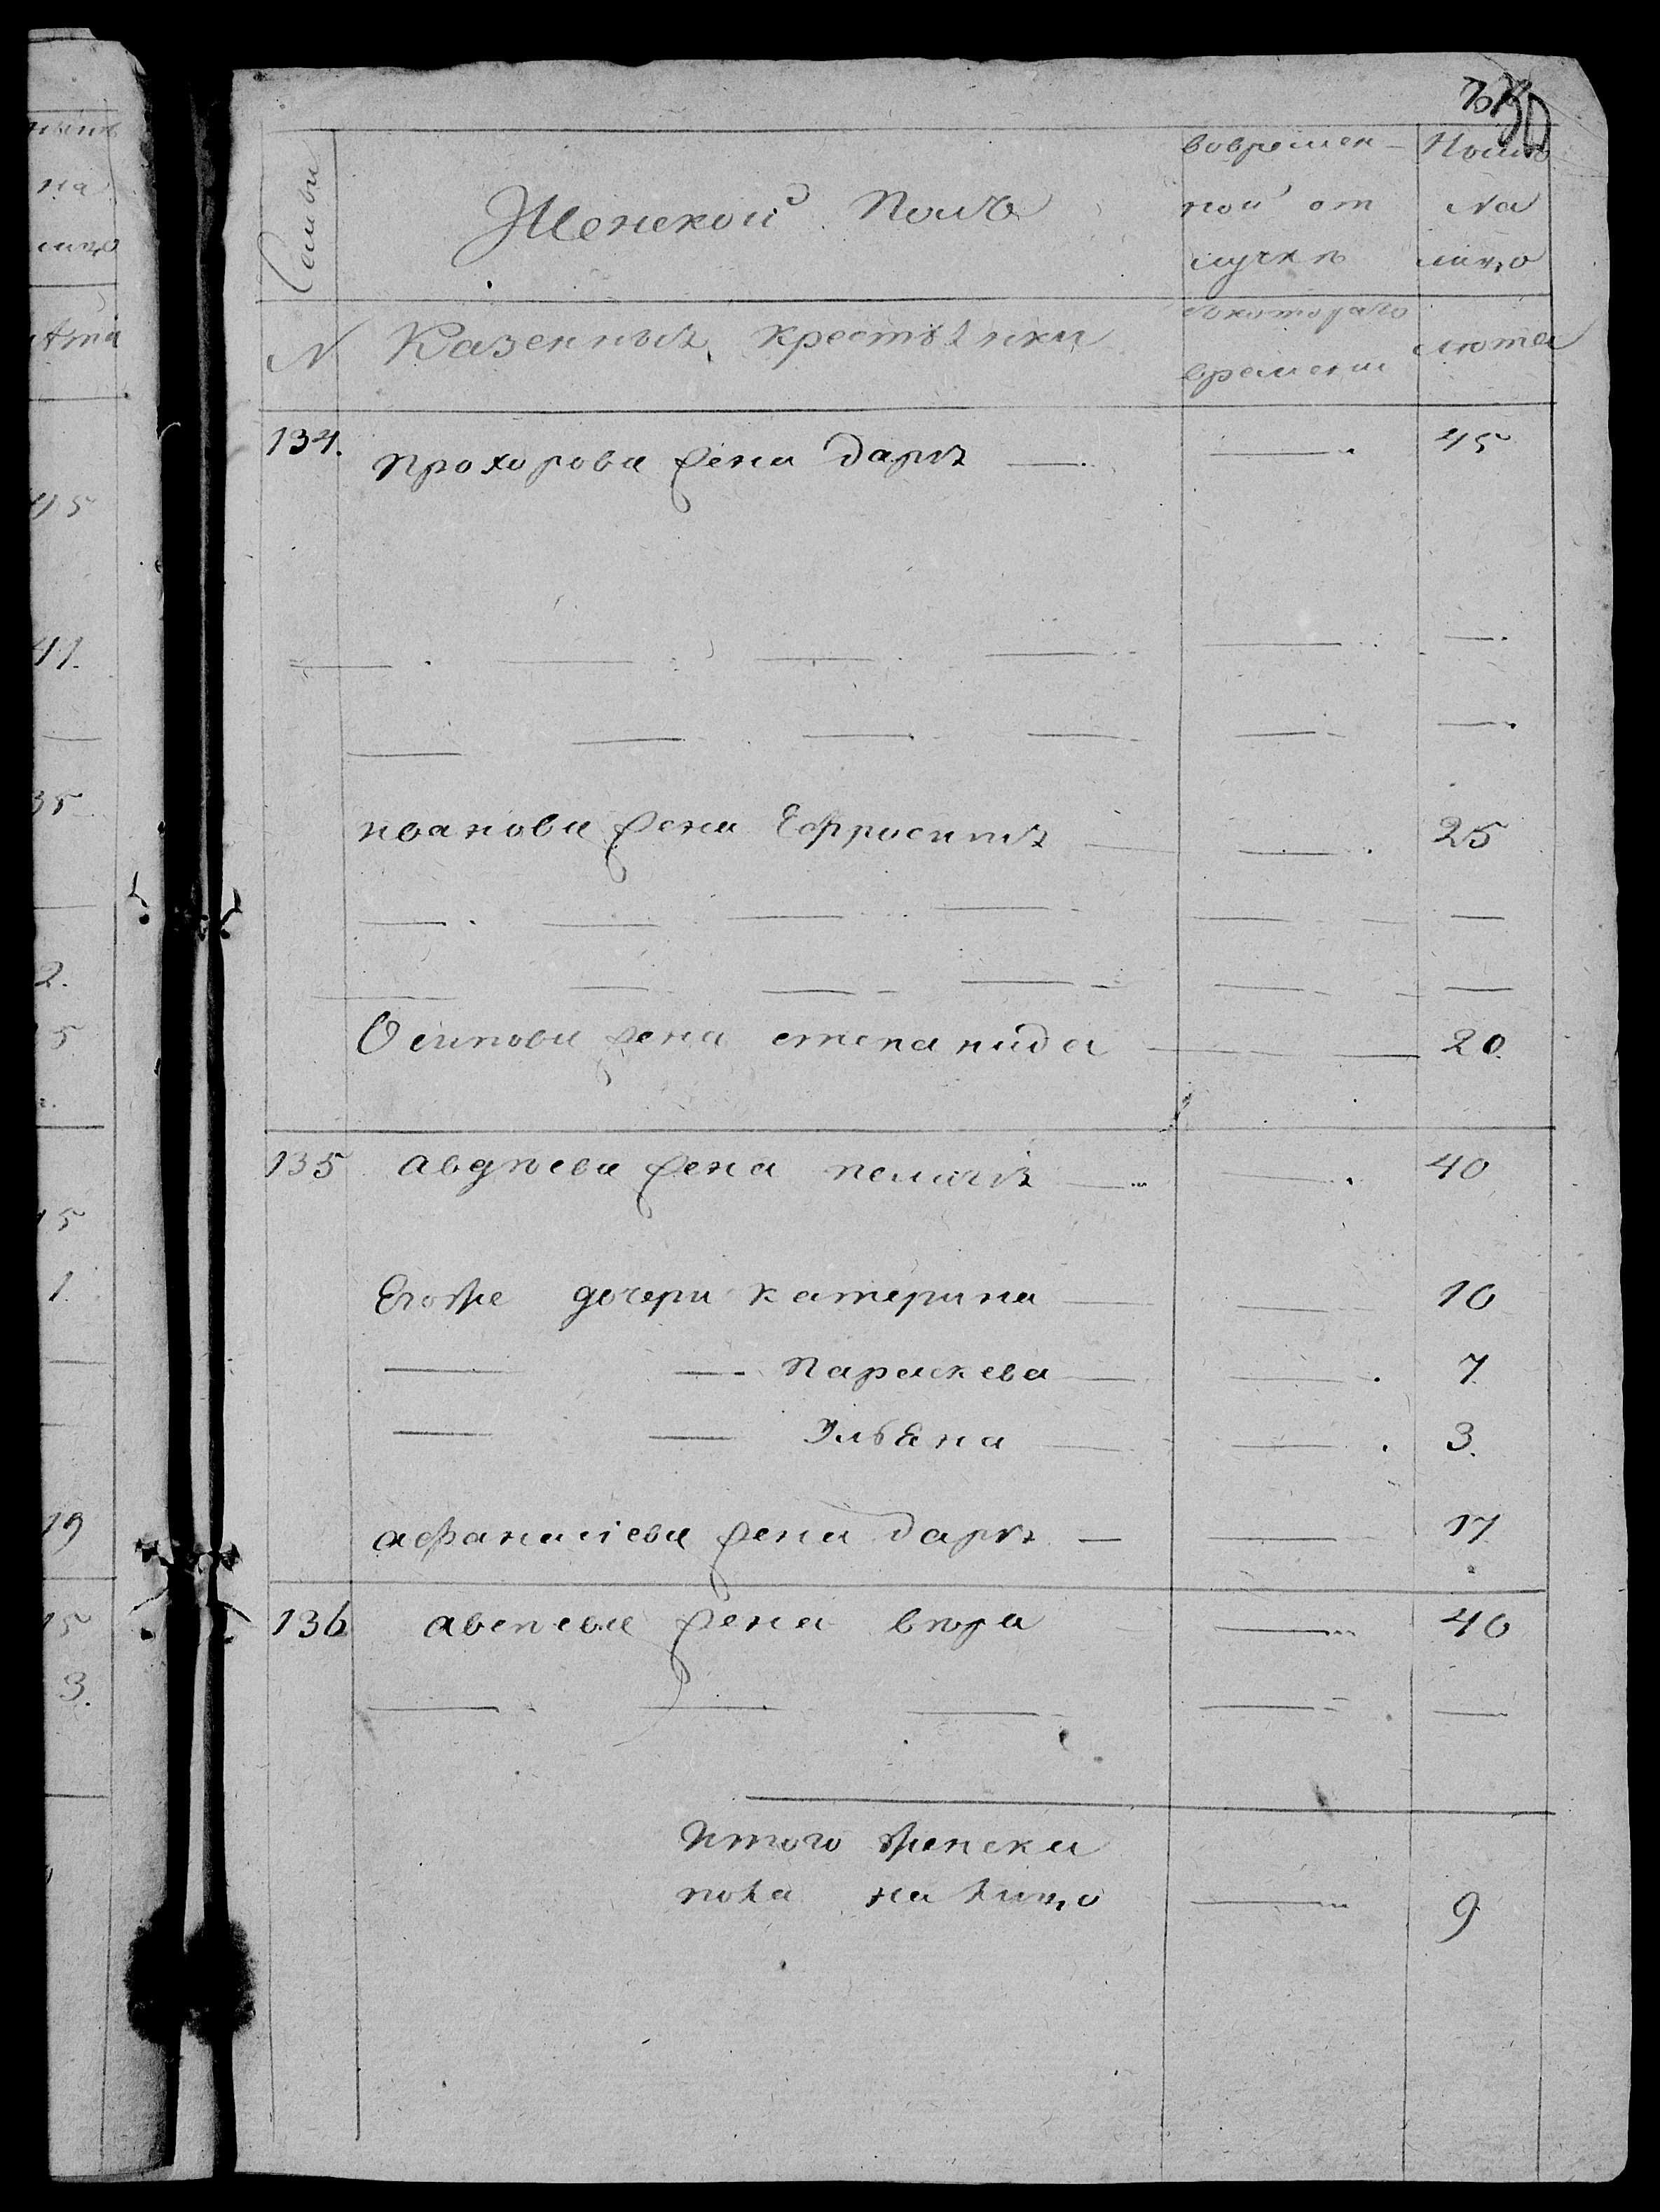 30
Семьи
Женской Полъ
вовремен-
ной от
лучкѣ
Нынѣ
На
лицо
N
Казенныя крестьянки
Скотораго
времени
лѣта
134. Прохорова жена дарья — — 45
ивановы жена Ефросинья — — 25
Осипова жена степанида — — 20
135 авдѣева жена пелагия — — 40
Егожъ дочери катерина — — 10
— — Параскева — — 7
— — Ульяна — — 3.
афанасиева жена дарья — — 17
136 авсѣева жена вѣра — 40
Итого женска
пола на лицо — 9